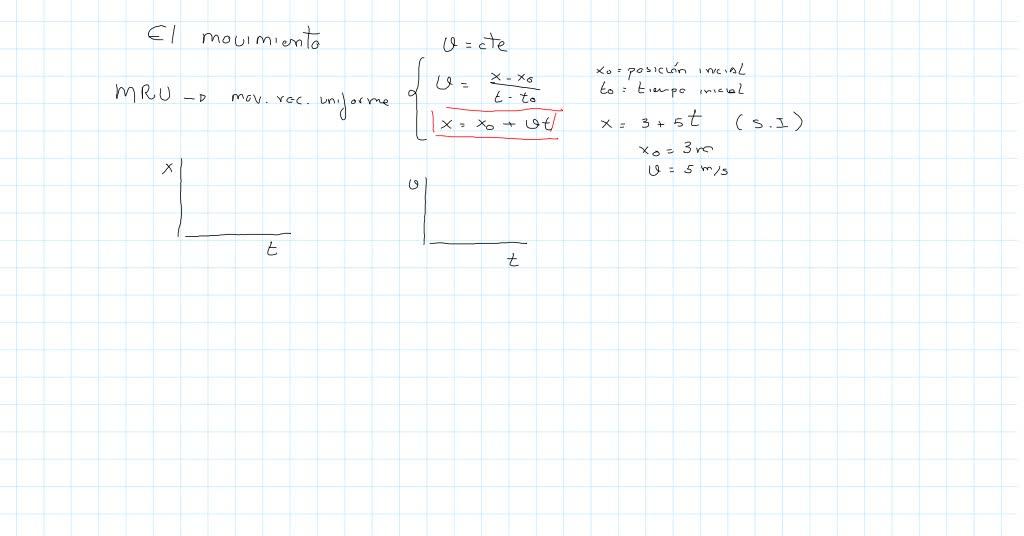 El movimiento
MRU → mov. rec. uniforme
v = cte
v = x - x₀ / t - t₀
x = x₀ + vt
x₀ = posición inicial
t₀ = tiempo inicial
x = 3 + 5t (S.I)
x₀ = 3 m
v = 5 m/s
x
t
v
t